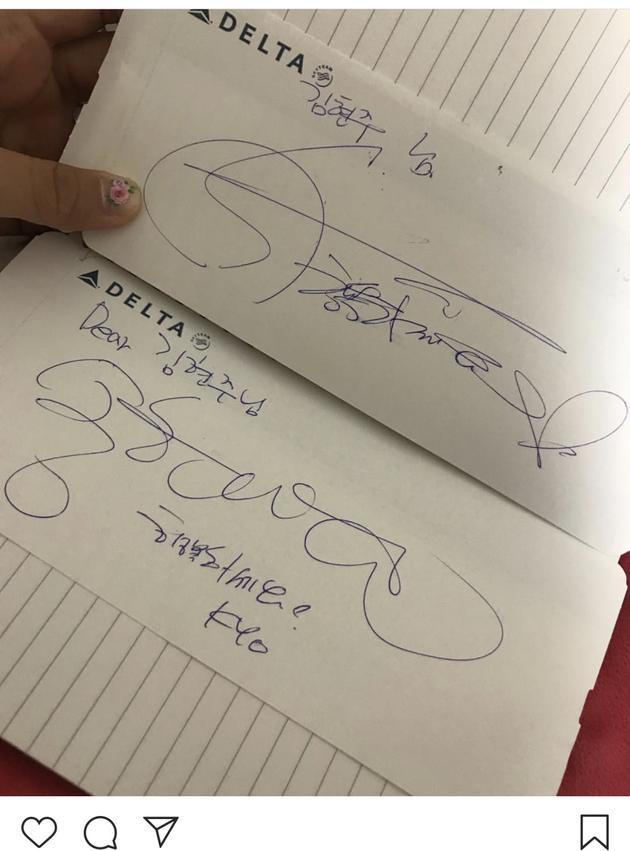 DELTA
SKYTEAM
김현주 님.
행복하세요
DELTA
SKYTEAM
Dear 김현주님
행복하세요!
KYO